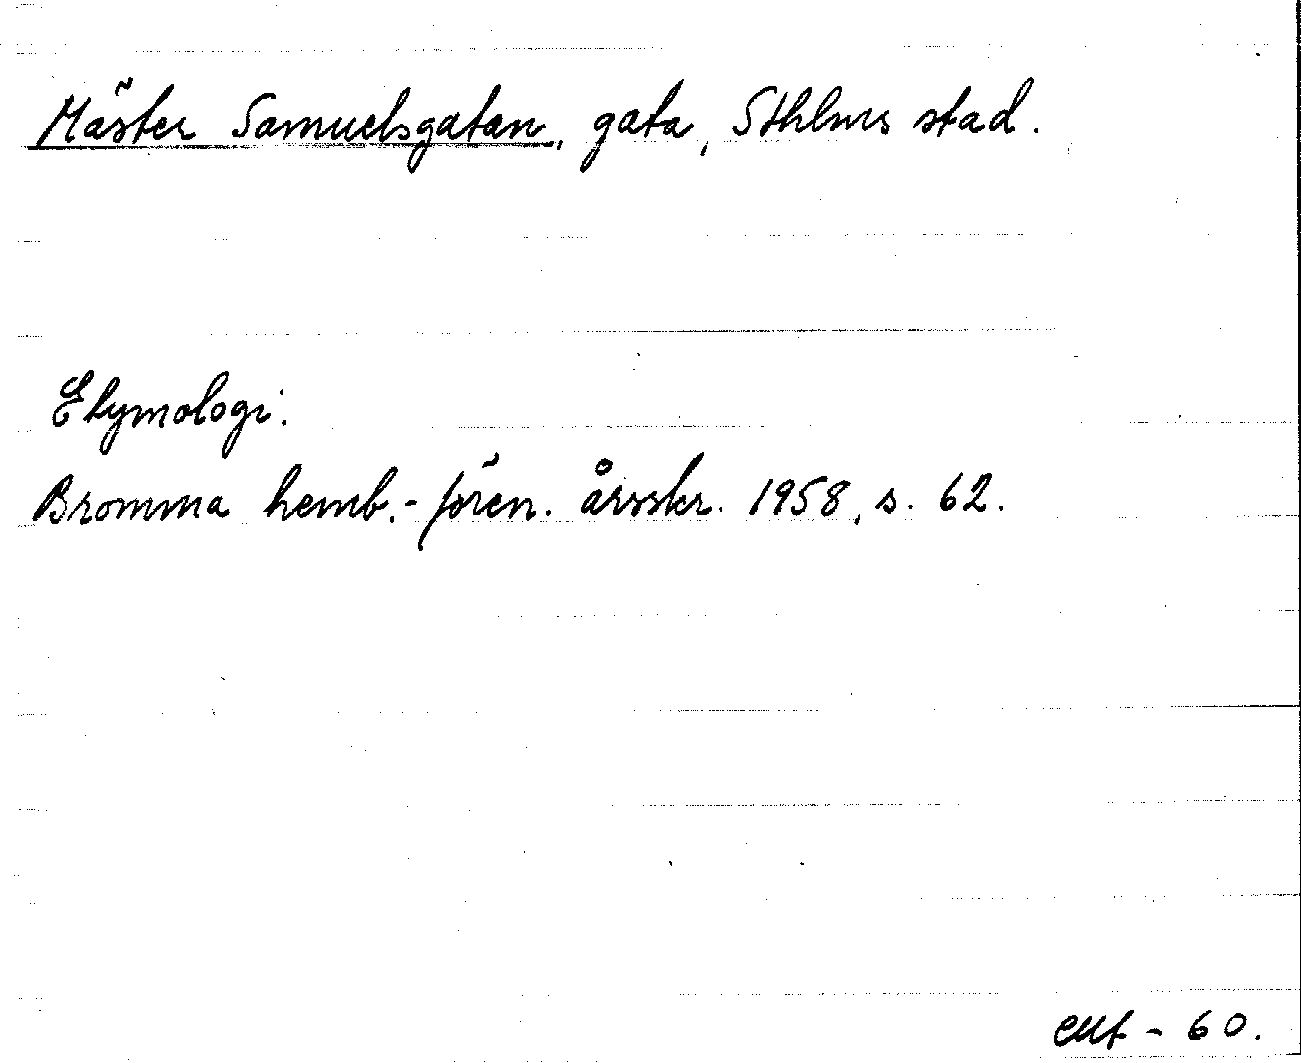 Mäster Samuelsgatan, gata, Sthlms stad.
Etymologi.
Bromma hemb.-fören. årsskr. 1958, s. 62.
- 60.